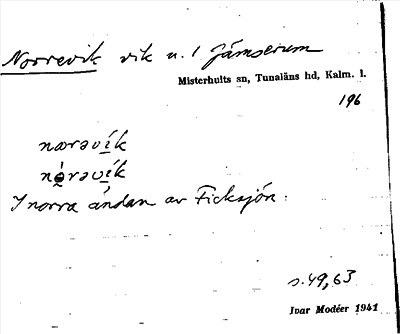 Norrevik vik u. l Jämserum
Misterhults sn, Tunaläns hd, Kalm. l.
196
nærəvík
nǿrəvík
I norra ändan av Ficksjön.
s. 49, 63
Ivar Modéer 1941